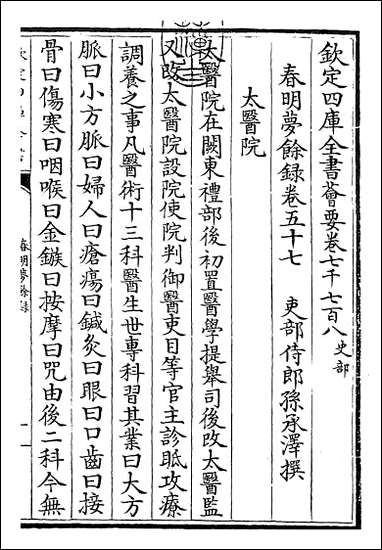 欽定四庫全書薈要卷七千七百八 史部
春明夢餘錄卷五十七 吏部侍郎孫承澤撰
太醫院
太醫院在闕東禮部後初置醫學提舉司後改太醫監
又改太醫院設院使院判御醫吏目等官主診眡攻療
調養之事凡醫術十三科醫生世專科習其業曰大方
脈曰小方脈曰婦人曰瘡瘍曰鍼灸曰眼曰口齒曰接
骨曰傷寒曰咽喉曰金鏃曰按摩曰咒由後二科今無
春明夢餘錄